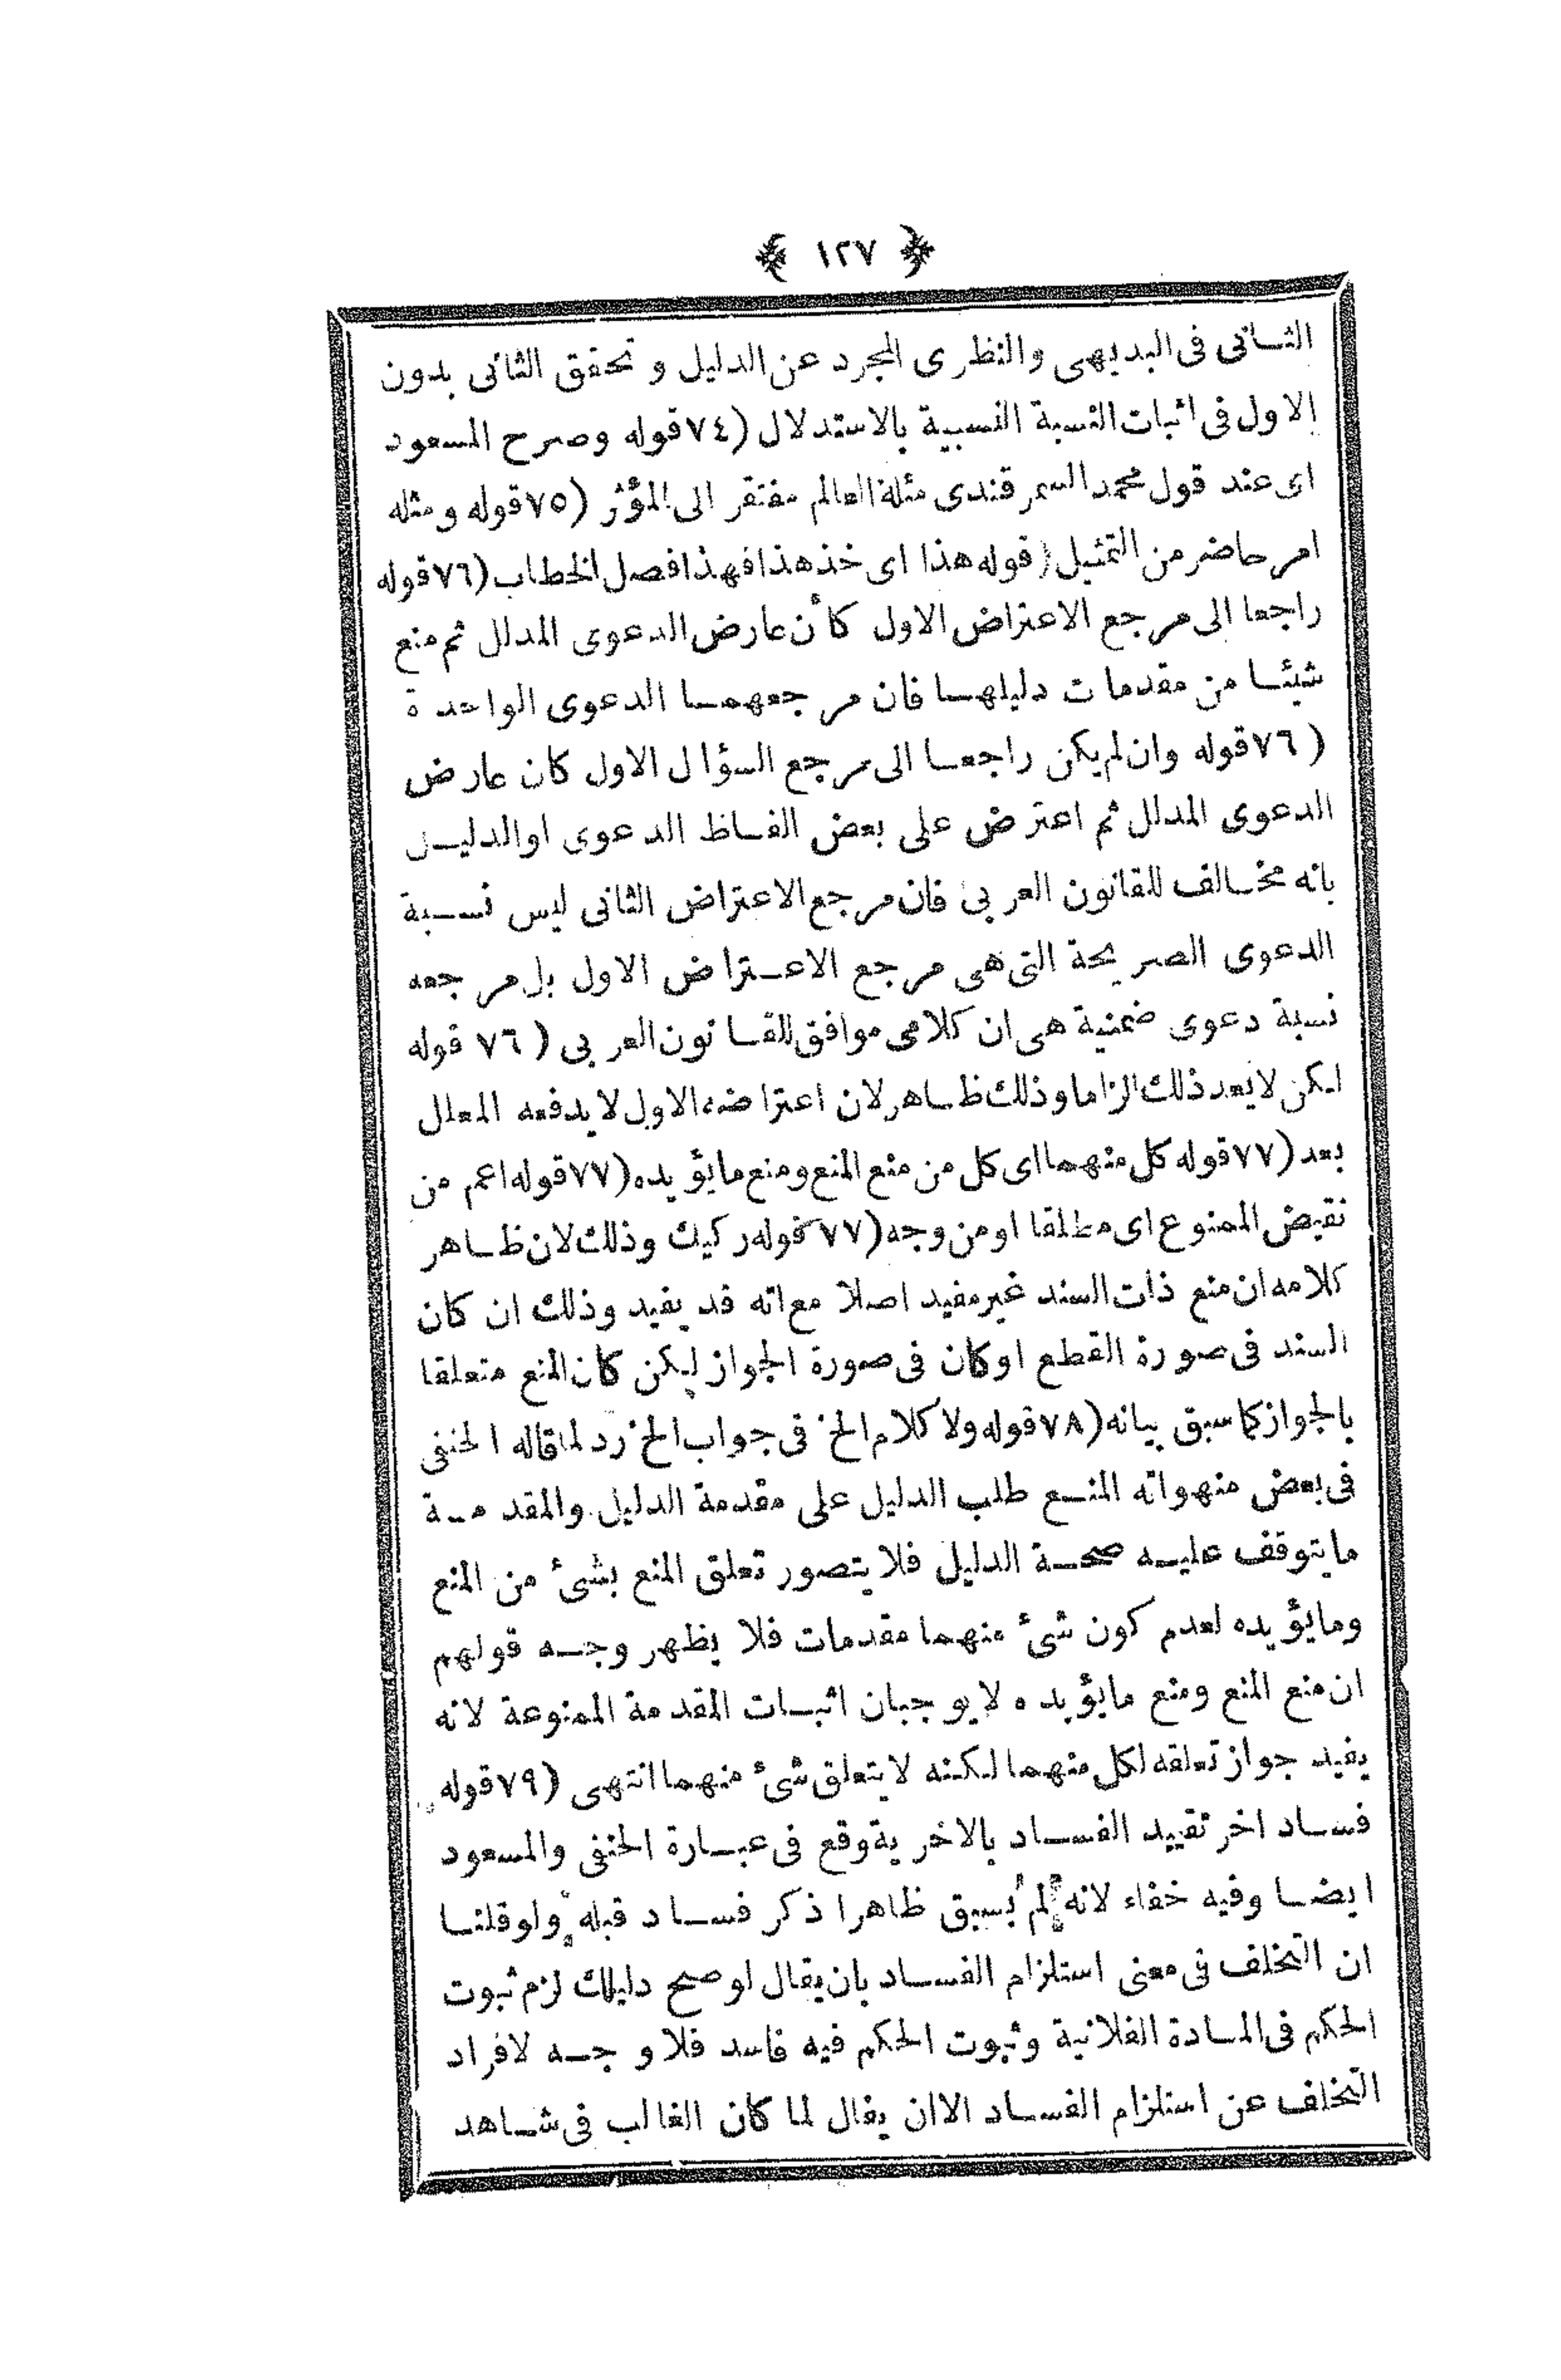 ﴿ ١٢٧ ﴾
الثـانى فى البديهى والنظرى المجرد عن الدليل و تحقق الثانى بدون
الاول فى اثبات النسبة النسبية بالاستدلال (٧٤ قوله وصرح المسعود
اى عند قول محمد السمرقندى مثلة العالم مفتقر الى المؤثر (٧٥ قوله ومثله
امر حاضر من التمثيل (قوله هذا اى خذ هذا فهذا فصل الخطاب (٧٦ قوله
راجعا الى مرجع الاعتراض الاول كأن عارض الدعوى المدلل ثم منع
شيئـا من مقدمات دليلهـا فان مرجعهمـا الدعوى الواحدة
(٧٦ قوله وان لم يكن راجعـا الى مرجع السؤال الاول كان عارض
الدعوى المدلل ثم اعترض على بعض الفـاظ الدعوى او الدليـل
بانه مخـالف للقانون العربى فان مرجع الاعتراض الثانى ليس نسـبة
الدعوى الصريحة التى هى مرجع الاعـتراض الاول بل مرجعه
نسبة دعوى ضمنية هى ان كلامى موافق للقـانون العربى (٧٦ قوله
لكن لا يعد ذلك الزاما وذلك ظـاهر لان اعتراضه الاول لا يدفعه المعلل
بعد (٧٧ قوله كل منهما اى كل من منع المنع ومنع ما يؤيده (٧٧ قوله اعم من
نقيض الممنوع اى مطلقا او من وجه (٧٧ قوله ركيك وذلك لان ظـاهر
كلامه ان منع ذات السند غير مفيد اصلا مع انه قد يفيد وذلك ان كان
السند فى صورة القطع او كان فى صورة الجواز ليكن كان المنع متعلقا
بالجواز كما سبق بيانه (٧٨ قوله ولا كلام الخ فى جواب الخ رد لما قاله الحنفى
فى بعض منهواته المنـع طلب الدليل على مقدمة الدليل والمقدمـة
ما يتوقف عليـه صحـة الدليل فلا يتصور تعلق المنع بشئ من المنع
وما يؤيده لعدم كون شئ منهما مقدمات فلا يظهر وجـه قولهم
ان منع المنع ومنع ما يؤيده لا يوجبان اثبـات المقدمة الممنوعة لانه
يفيد جواز تعلقه لكل منهما لكنه لا يتعلق شئ منهما انتهى (٧٩ قوله
فسـاد اخر تقييد الفسـاد بالاخرية وقع فى عبـارة الحنفى والمسعود
ايضـا وفيه خفاء لانه لم يسبق ظاهرا ذكر فسـاد قبله ولو قلنـا
ان التخلف فى معنى استلزام الفسـاد بان يقال لو صح دليلك لزم ثبوت
الحكم فى المـادة الفلانية وثبوت الحكم فيه فاسد فلا وجـه لافراد
التخلف عن استلزام الفسـاد الا ان يقال لما كان الغالب فى شـاهد